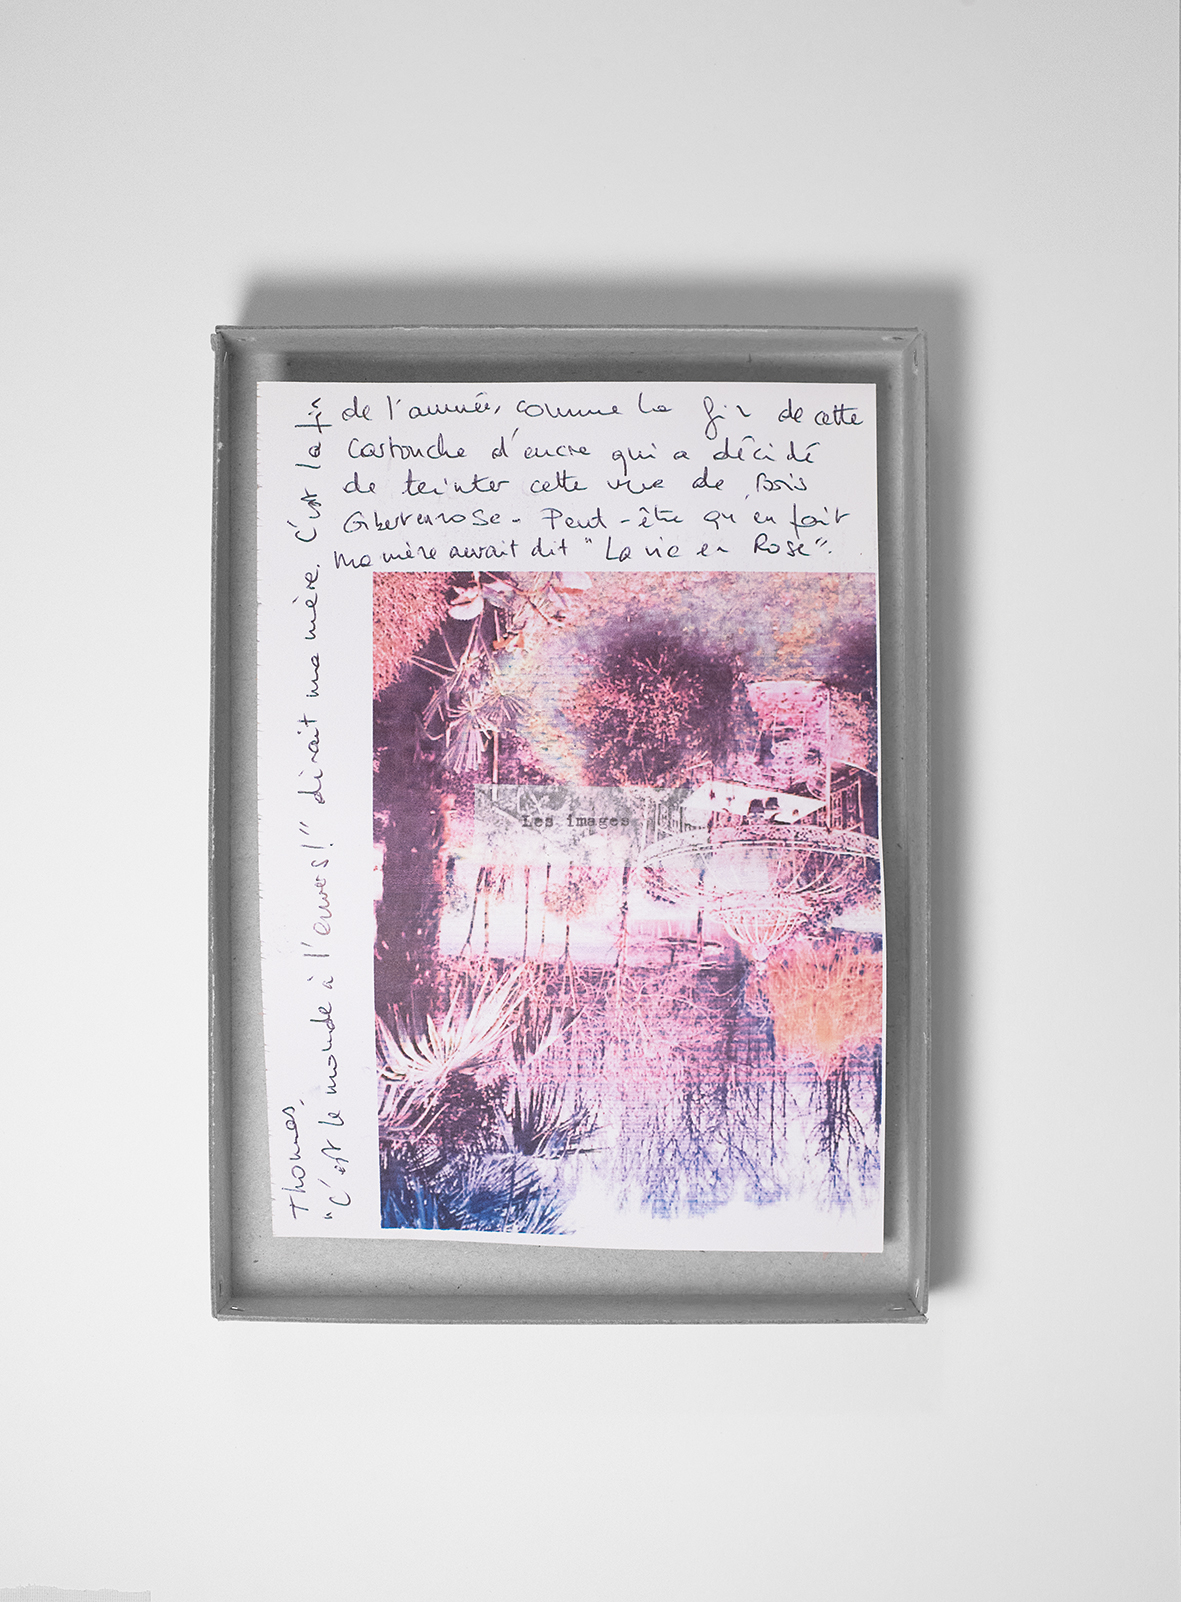 Thomas,
"C'est le monde à l'envers!" dirait ma mère. C'est la fin
de l'année, comme la fin de cette
cartouche d'encre qui a décidé
de teinter cette vue de Bois
Guilbert en rose. Peut-être qu'en fait
ma mère aurait dit "La vie en Rose".
Les images